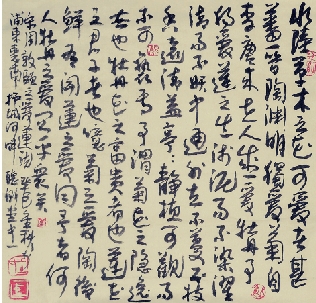 水陸草木之花可愛者甚
蕃晋陶渊明獨愛菊自
李唐来世人盛愛牡丹予
獨愛蓮之出淤泥而不染濯
清而不妖中通外直不蔓不枝
香遠益清亭亭静植可觀而
不可褻焉予謂菊花之隐逸
者也牡丹花之富貴者也蓮花
之君子者也噫菊之愛陶後
鲜有闻蓮之愛同予者何
人牡丹之愛宜乎衆矣
宋周敦頤之愛蓮說